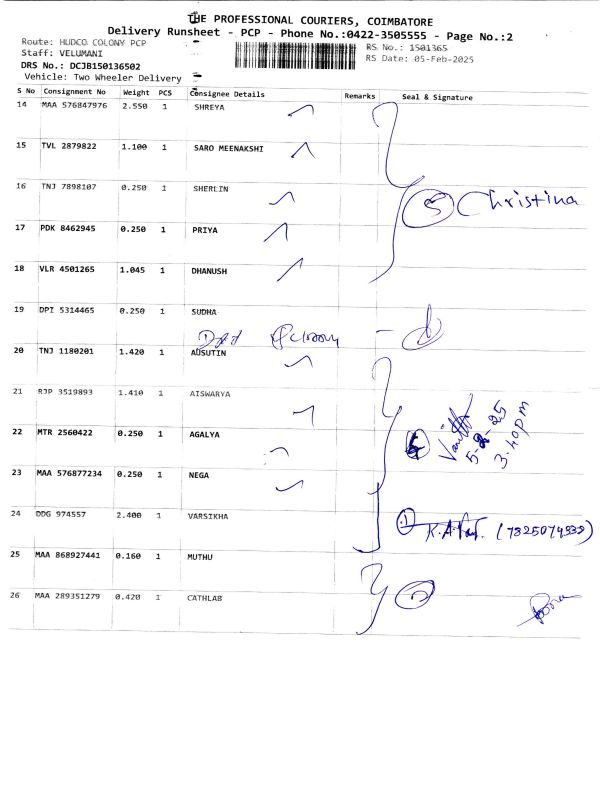 THE PROFESSIONAL COURIERS, COIMBATORE
Delivery Runsheet - PCP - Phone No.:0422-3505555 - Page No.:2
Route: HUDCO COLONY PCP
RS No.: 1501365
Staff: VELUMANI
RS Date: 05-Feb-2025
DRS No.: DCJB150136502
Vehicle: Two Wheeler Delivery
S No Consignment No Weight PCS Consignee Details Remarks Seal & Signature
14 MAA 576847976 2.550 1 SHREYA
15 TVL 2879822 1.100 1 SARO MEENAKSHI
16 TNJ 7898107 0.250 1 SHERLIN
5 Christina
17 PDK 8462945 0.250 1 PRIYA
18 VLR 4501265 1.045 1 DHANUSH
19 DPI 5314465 0.250 1 SUDHA
20 TNJ 1180201 1.420 1 AUSUTIN
21 RJP 3519893 1.410 1 AISWARYA
5-2-25
3.40pm
22 MTR 2560422 0.250 1 AGALYA
23 MAA 576877234 0.250 1 NEGA
24 DDG 974557 2.400 1 VARSIKHA
1
25 MAA 868927441 0.160 1 MUTHU
26 MAA 289351279 0.420 1 CATHLAB
2